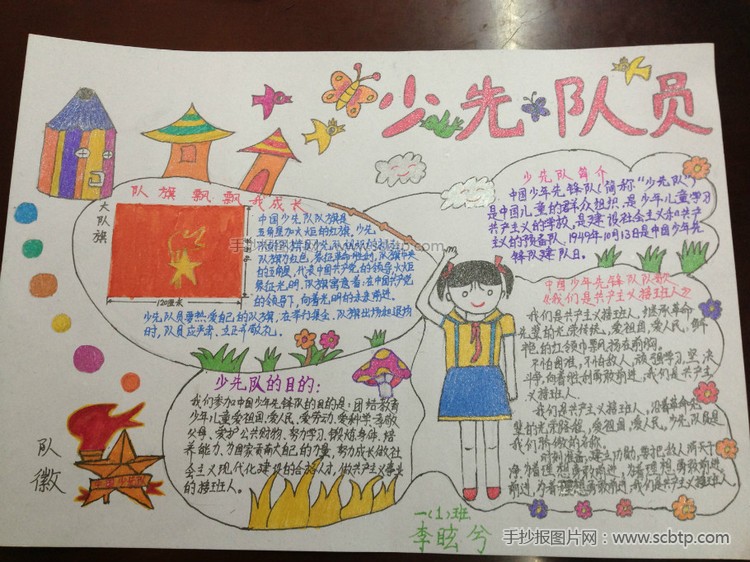 少先队员
队旗飘飘我成长
大队旗
中国少年队队旗是
五角星加火炬的红旗,少先
队旗为红色,象征革命胜利,队旗中央
的五角星,代表中国共产党的领导,火炬
象征光明,队旗寓意着:在中国共产党
的领导下,向着光明的未来前进。
120厘米
少先队员要热爱自己的队旗,在举行集会、队旗出场和退场
时,队员应严肃、立正、敬礼。
少先队简介
中国少年先锋队(简称“少先队”)
是中国儿童的群众组织、是少年儿童学习
共产主义的学校,是建设社会主义和共产
主义的预备队,1949年10月13日是中国少年先
锋队建队日。
中国少年先锋队队歌
《我们是共产主义接班人》
我们是共产主义接班人,继承革命
先辈的光荣传统,爱祖国,爱人民,鲜
艳的红领巾飘扬在前胸。
不怕困难,不怕敌人,顽强学习,坚决
斗争,向着胜利勇敢前进,我们是共产主
义接班人。
我们是共产主义接班人,沿着革命先
辈的光荣路程,爱祖国,爱人民,少先队员是
我们骄傲的名称。
时刻准备,建立功勋,要把敌人消灭干
净,为着理想勇敢前进,为着理想,勇敢前进
前进,为着理想勇敢前进,我们是共产主义接班人。
少先队的目的:
我们参加中国少年先锋队的目的是:团结教育
少年儿童爱祖国、爱人民、爱劳动、爱科学、孝敬
父母、爱护公共财物,努力学习,锻炼身体,培
养能力,为国家贡献大自己的力量,努力成长做社
会主义现代化建设的合格人才,做共产主义事业
的接班人。
队徽
中国少年先锋队
一(1)班
李眩兮
手抄报图片网 www.scbtp.com
手抄报图片网:www.scbtp.com